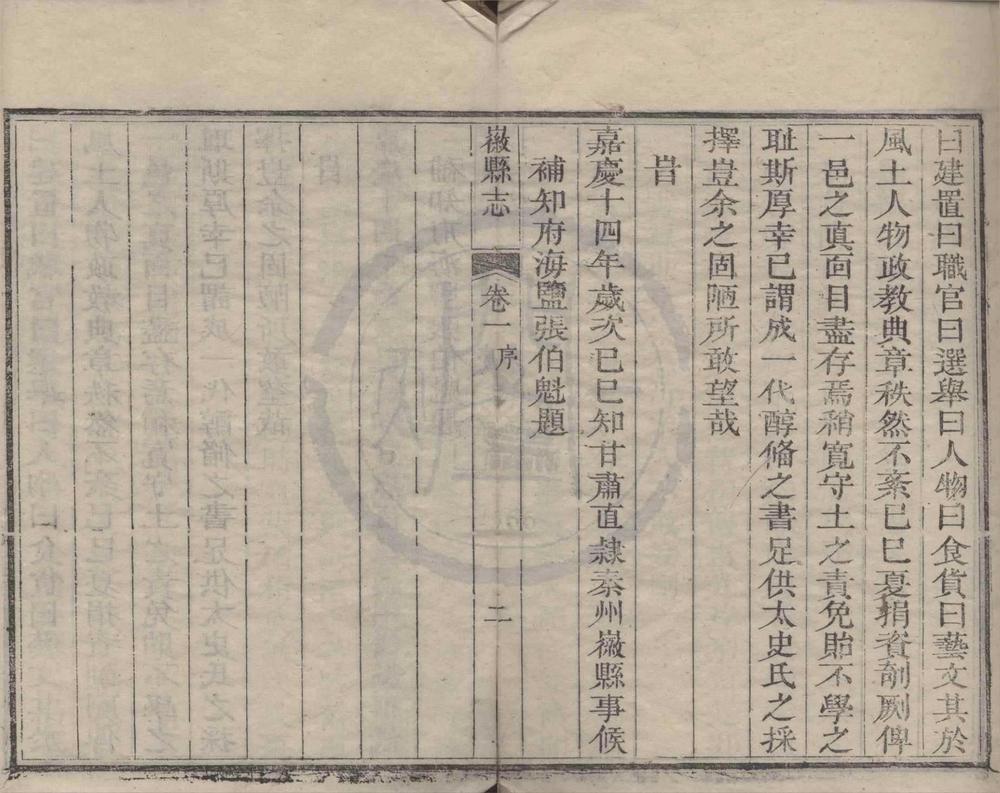 曰建置曰職官曰選舉曰人物曰食貨曰藝文其於
風土人物政教典章秩然不紊已巳夏捐資剞劂俾
一邑之真面目盡存焉稍寬守土之責免貽不學之
耻斯厚幸已謂成一代醇備之書足供太史氏之採
擇豈余之固陋所敢望哉
旹
嘉慶十四年歲次已巳知甘肅直隸秦州徽縣事候
補知府海鹽張伯魁題
徽縣志 卷一 序 二